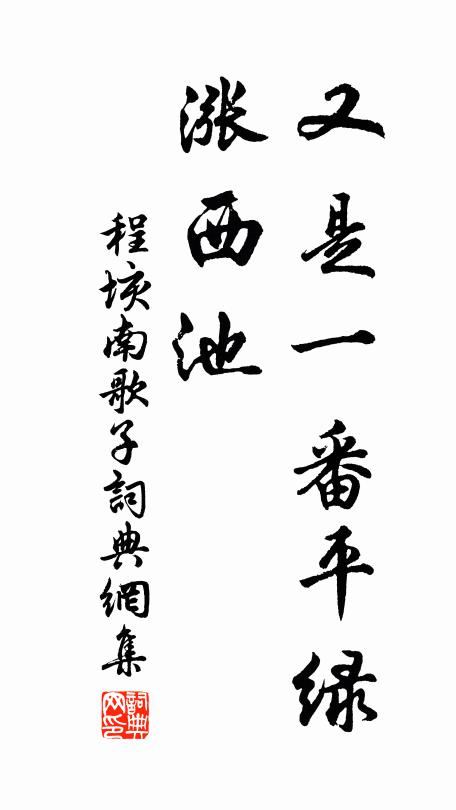 又是一番平绿
涨西池
程垓南歌子詞典網集
詞典网印